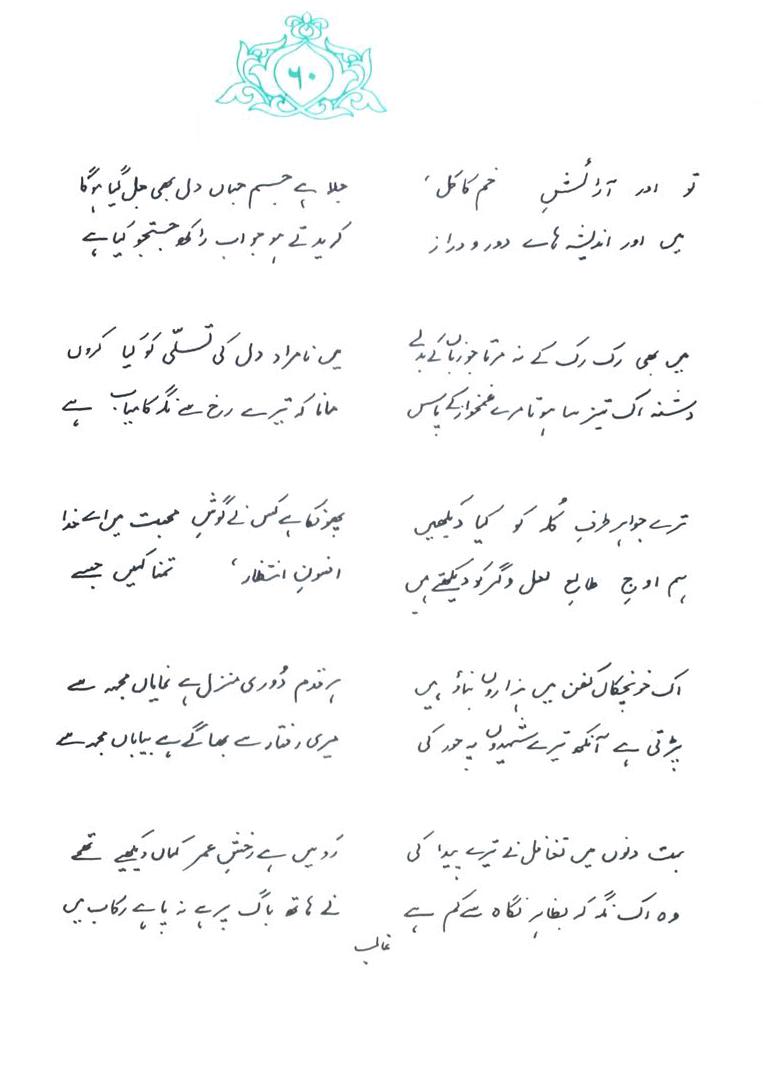 ۶۰
تو اور آرائشِ خمِ کاکل
میں اور اندیشہ ہاے دور و دراز
جلا ہے جسم جہاں دل بھی جل گیا ہوگا
کریدتے ہو جو اب راکھ جستجو کیا ہے
میں بھی رک رک کے نہ مرتا جو زباں کے بدلے
دشنہ اک تیز سا ہوتا مرے غمخوار کے پاس
میں نامراد دل کی تسلّی کو کیا کروں
مانا کہ تیرے رخ سے نگہ کامیاب ہے
ترے جواہرِ طرفِ کُلہ کو کیا دیکھیں
ہم اوجِ طالعِ لعل و گہر کو دیکھتے ہیں
پھونکا ہے کس نے گوشِ محبت میں اے خدا
افسونِ انتظار، تمنا کہیں جسے
اک خونچکاں کفن میں ہزاروں بناؤ ہیں
پڑتی ہے آنکھ تیرے شہیدوں پہ حور کی
ہر قدم دُوریِ منزل ہے نمایاں مجھ سے
میری رفتار سے بھاگے ہے بیاباں مجھ سے
بہت دنوں میں تغافل نے تیرے پیدا کی
وہ اک نگہ کہ بظاہر نگاہ سے کم ہے
رَو میں ہے رخشِ عمر کہاں دیکھیے تھمے
نے ہاتھ باگ پر ہے نہ پا ہے رکاب میں
غالب